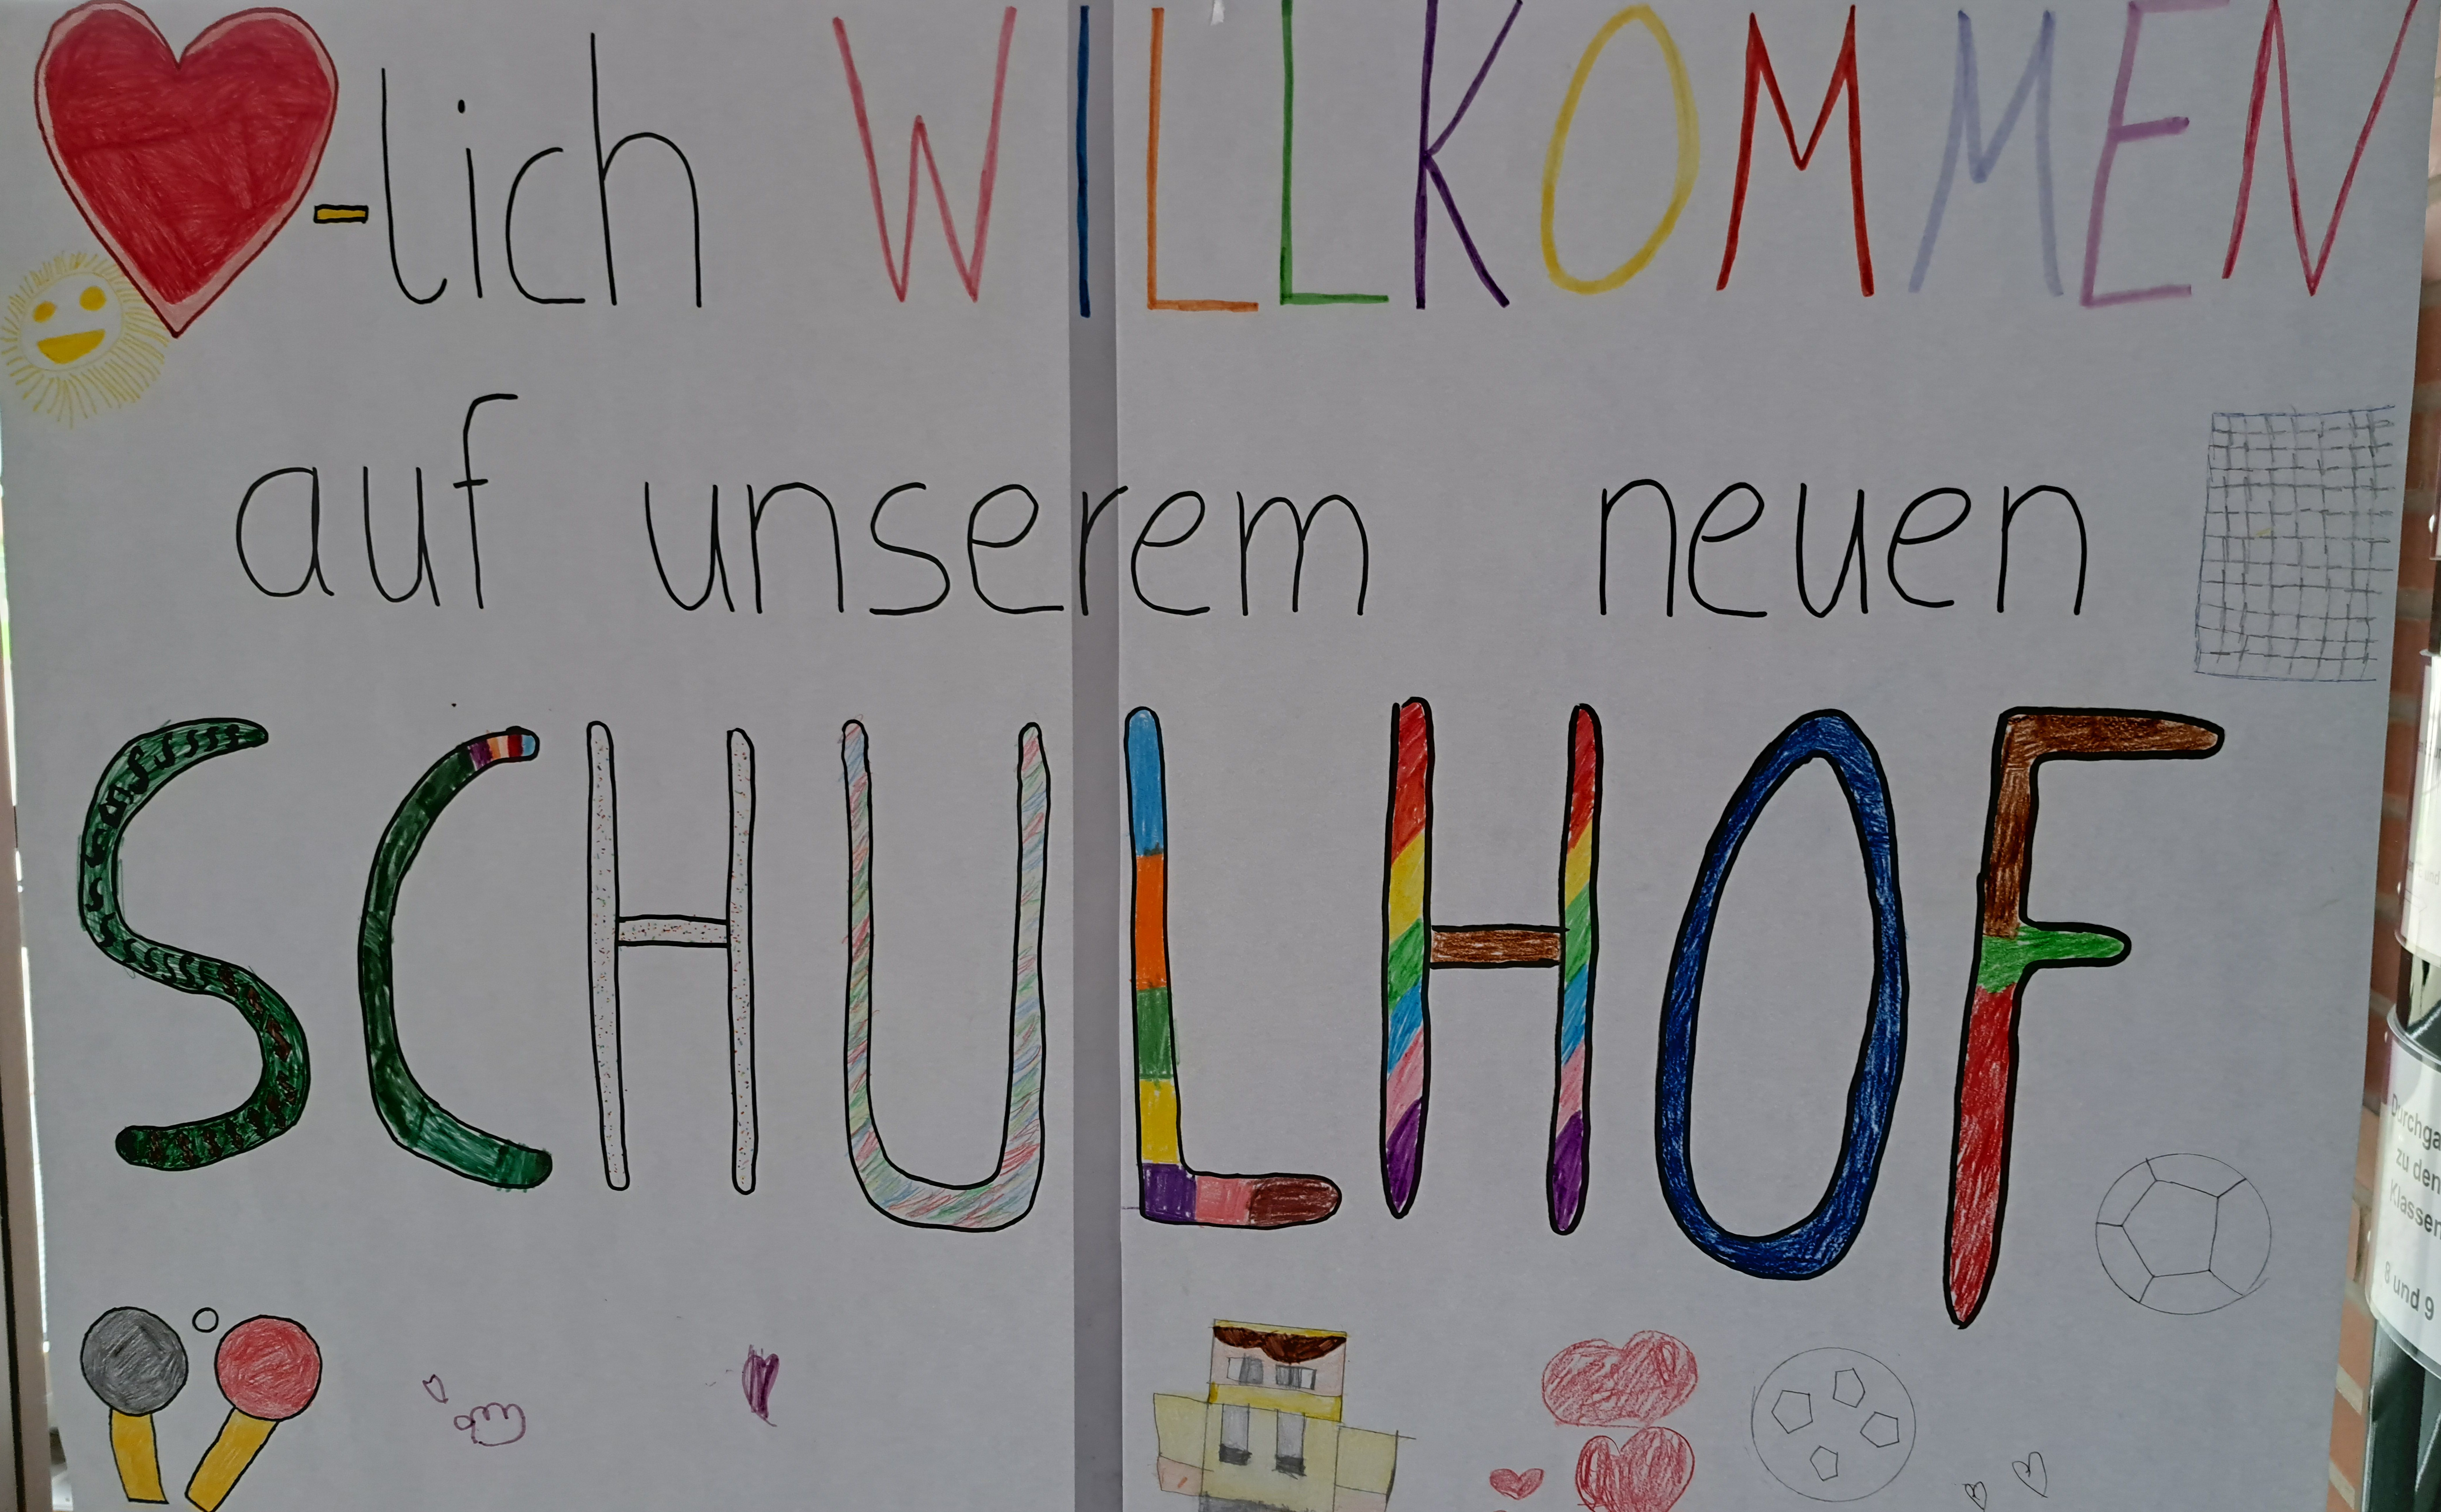 -lich WILLKOMMEN
auf unserem neuen
SCHULHOF
zu den
Klassen
8 und 9